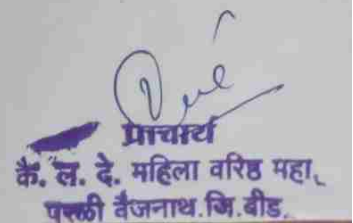 प्राचार्य
कै. ल. दे. महिला वरिष्ठ महा.
परळी वैजनाथ.जि.बीड.